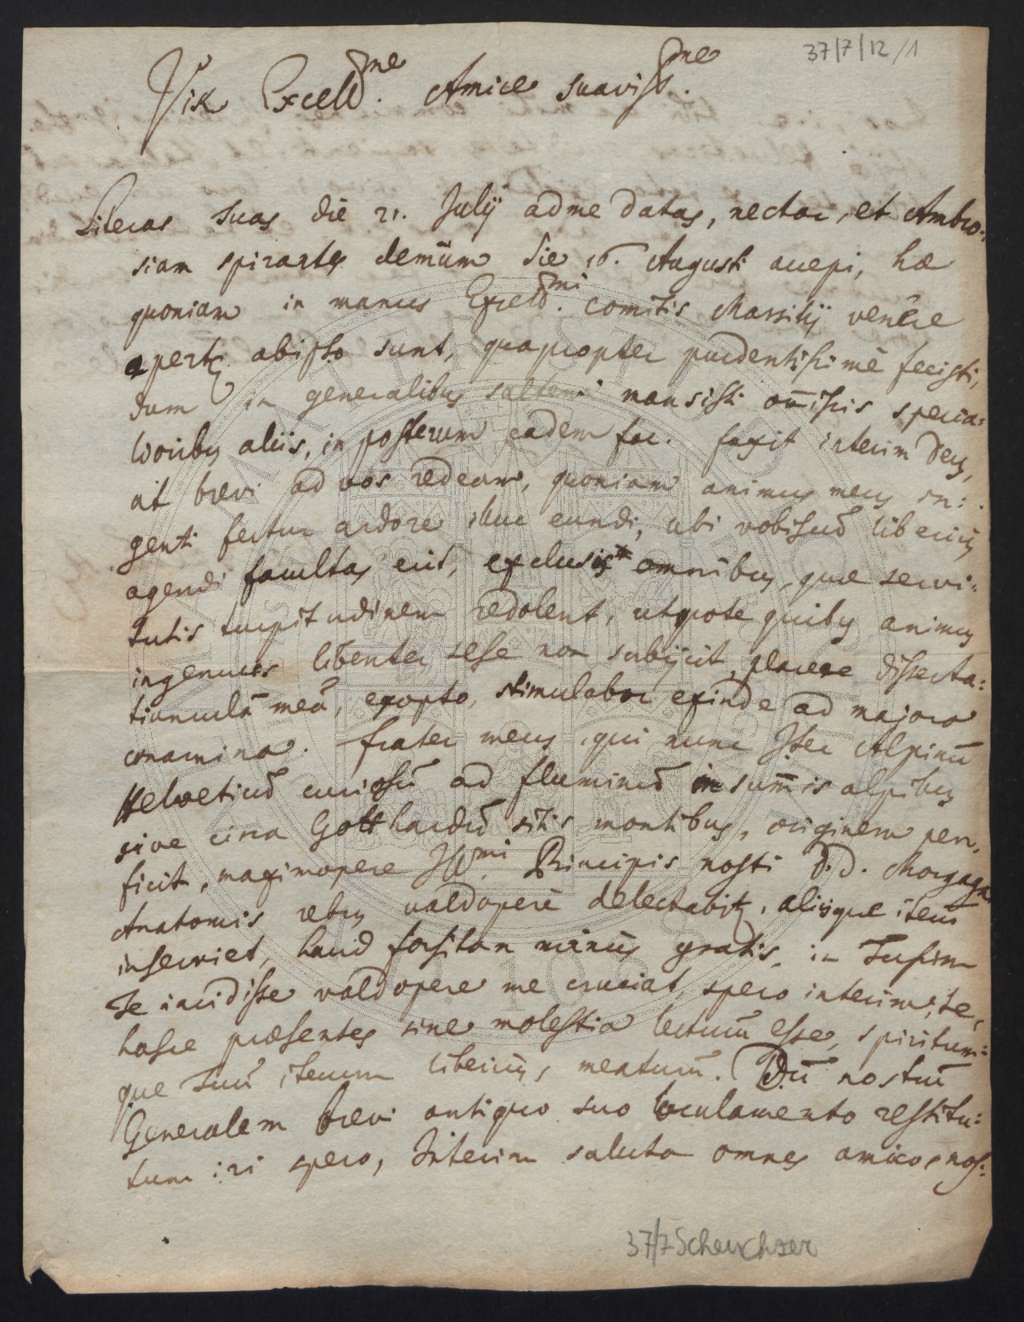 37/7/12/1
Vir Excell.me Amice suaviss.me
Literas tuas die 21. Julij ad me datas, nectar, et Ambro-
siam spirantes demùm die 16. Augusti accepi, hae
quoniam in manus Excell.mi Comitis Marsilij venêre
apertę ab ipso sunt, quapropter prudentissimè fecisti,
dum in generalibus saltem mansisti om̄issis specia=
lioribus aliis, in posterum eadem fac. faxit interim Deus,
ut brevi ad vos redeam, quoniam animus meus in=
genti fertur ardore illuc eundi, ubi vobiscum̄ liberius
agendi facultas erit, exclusis omnibus, quae servi=
tutis turpitudinem redolent, utpote quibus animus
ingenuus libenter sese non subijcit, placere disserta=
tiunculā meā, exopto, stimulabor exinde ad majora
conamina. Frater meus, qui nunc Iter Alpinū
Helveticū curiosū ad fluminū in sum̄is alpibus
sive circa Gotthardū sitis montibus, originem per-
ficit, maximopere Ill.mi Principis nostri D. D. Morgagni
Anatomis rebus valdoperè delectabit, aliisque item
inserviet, haud forsitan minùs gratis, in Tussim
Te incidisse valdopere me cruciat, spero interim, te,
hasce praesentes sine molestia lecturū esse, spiritum=
que tuū iterum liberius, meaturū. Dn̄ nostrū
Generalem brevi antiquo suo loculamento restitu=
tum iri spero, Interim saluta omnes amicos nos=
37/7 Scheuchzer